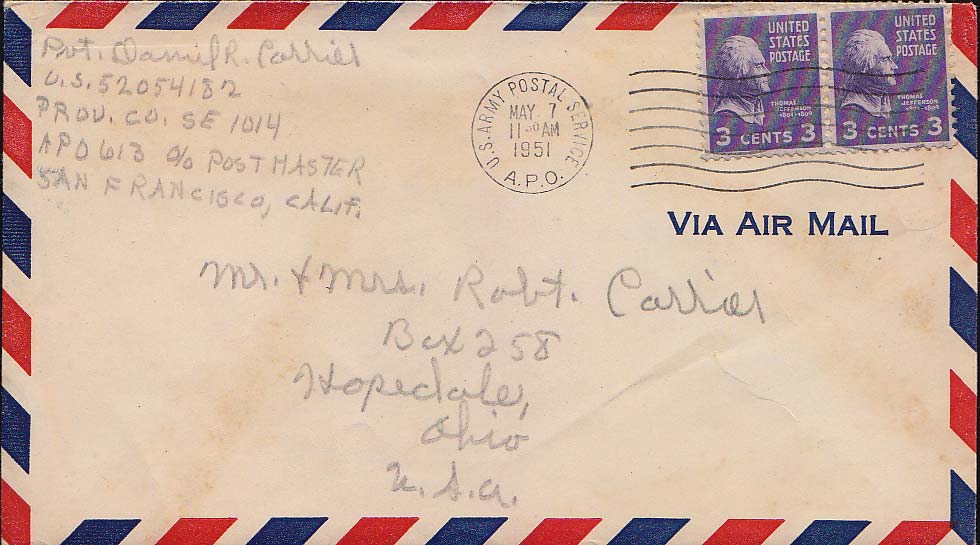 Pvt. Daniel R. Carrier
U.S. 52054182
PROV. CO. SE 1014
APO 613 c/o POSTMASTER
SAN FRANCISCO, CALIF.
U.S. ARMY POSTAL SERVICE
MAY 7
11 30 AM
1951
A.P.O.
UNITED
STATES
POSTAGE
THOMAS
JEFFERSON
1801-1809
3 CENTS 3
UNITED
STATES
POSTAGE
THOMAS
JEFFERSON
1801-1809
3 CENTS 3
VIA AIR MAIL
Mr. & Mrs. Robt. Carrier
Box 258
Hopedale,
Ohio
U.S.A.